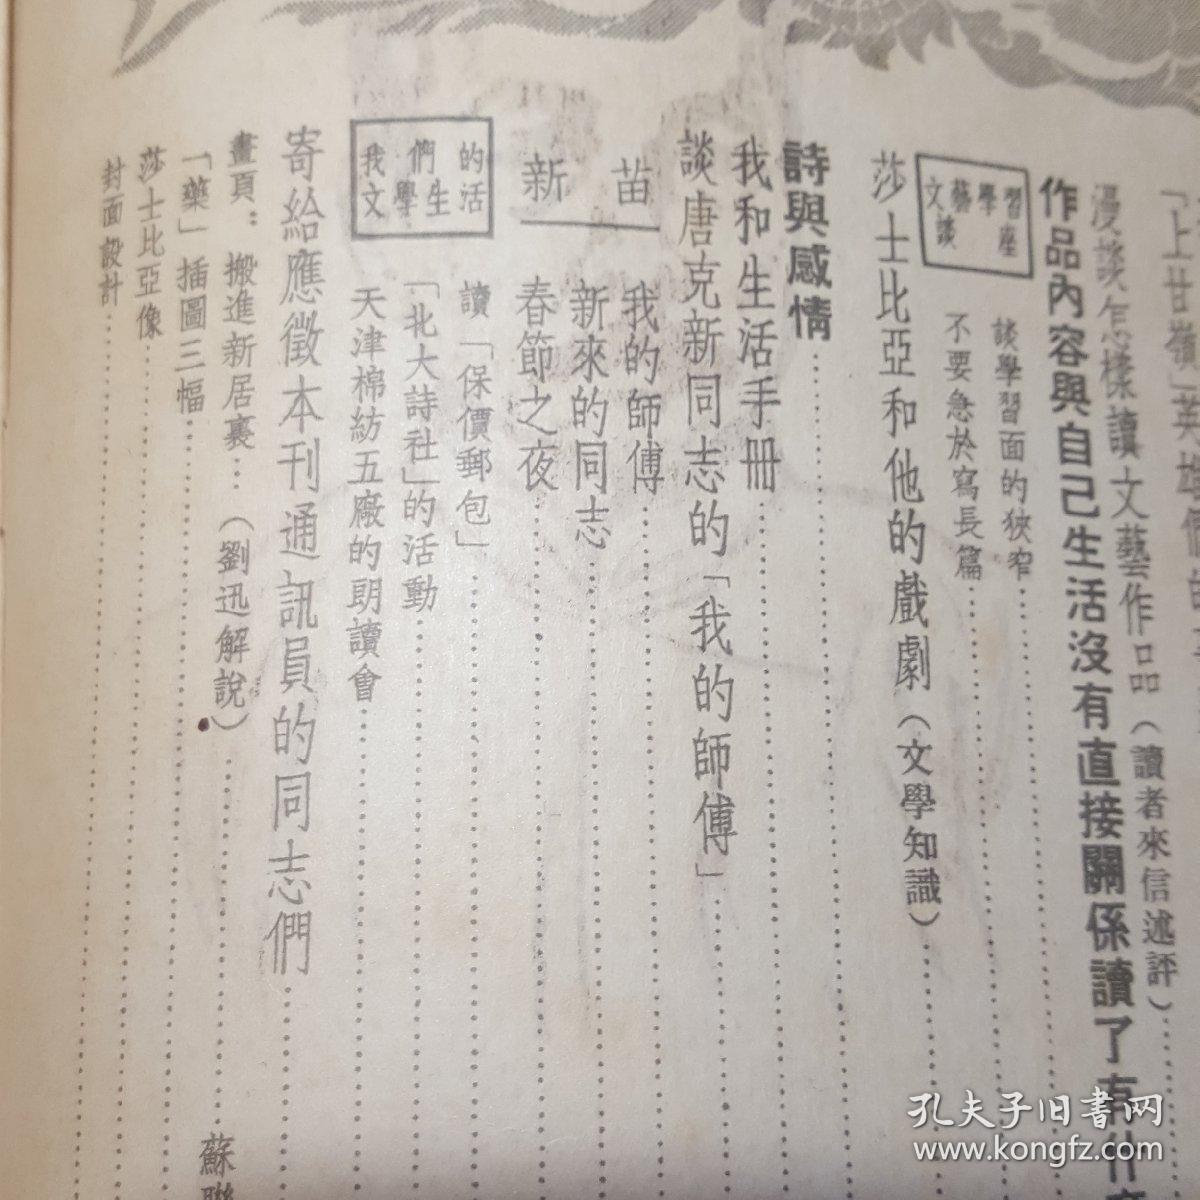 「上甘嶺」英雄
漫談怎樣讀文藝作品（讀者來信述評）
作品內容與自己生活沒有直接關係讀了有什
學習
文藝
講座
談學習面的狹窄
不要急於寫長篇
莎士比亞和他的戲劇（文學知識）
詩與感情
我和生活手冊
談唐克新同志的「我的師傅」
新苗
我的師傅
新來的同志
春節之夜
我們的
文學生活
讀「保價郵包」
「北大詩社」的活動
天津棉紡五廠的朗讀會
寄給應徵本刊通訊員的同志們
畫頁：搬進新居裏…（劉迅解說）
蘇聯
「藥」插圖三幅
莎士比亞像
封面設計
孔夫子旧书网
www.kongfz.com